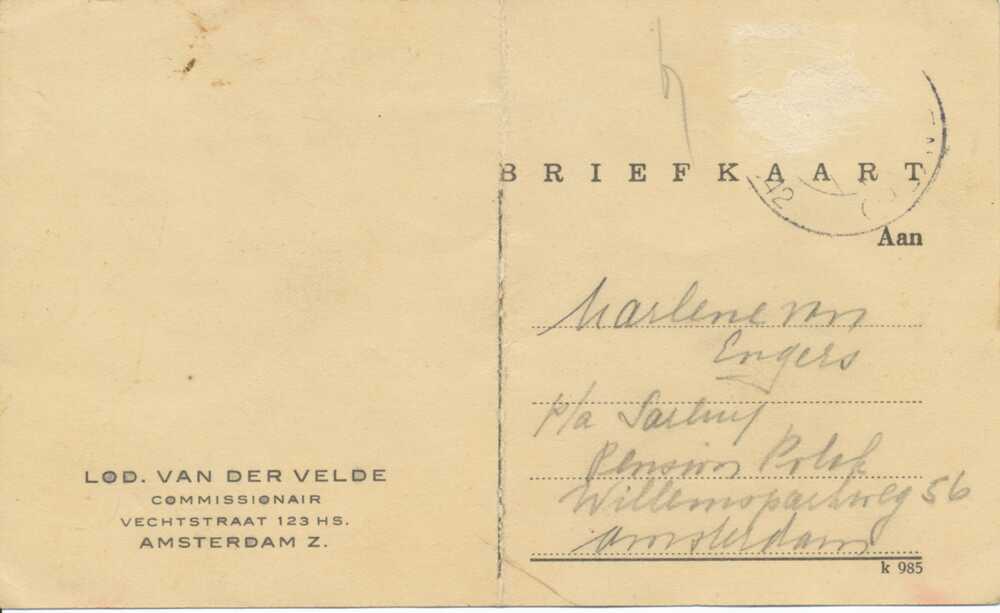 LOD. VAN DER VELDE
COMMISSIONAIR
VECHTSTRAAT 123 HS.
AMSTERDAM Z.
BRIEFKAART
42
Aan
Marlene van
Engers
p/a
Pension Polak
Willemsparkweg 56
Amsterdam
k 985